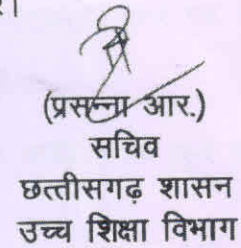 (प्रसन्ना आर.)
सचिव
छत्तीसगढ़ शासन
उच्च शिक्षा विभाग